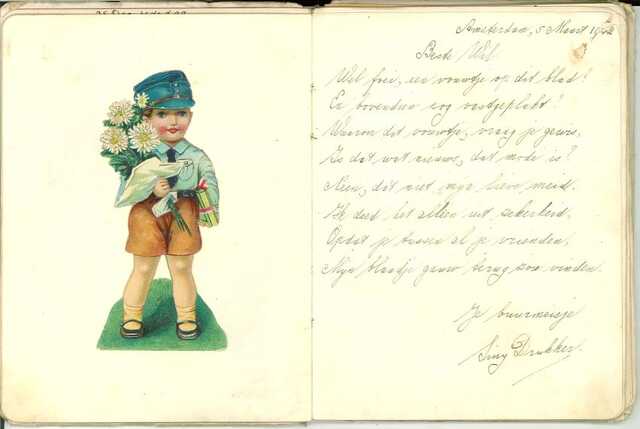 Amsterdam, 5 Maart 1942
Beste Wil
Wel foei, een vouwtje op dit blad?
En bovendien nog vastgeplakt?
Waarom dat vouwtje, vraag je gewis,
Is dat wat nieuws, dat mode is?
Neen, dit niet mijn lieve meid.
Ik deed het alleen uit zekerheid,
Opdat je tussen al je vrienden,
Mijn blaadje gauw terug zou vinden.
Je buurmeisje
Siny Drukker.